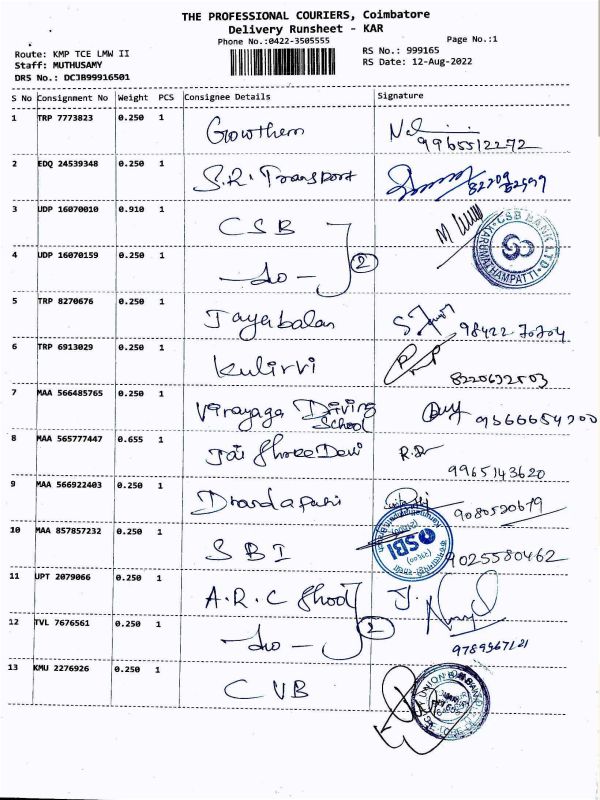 THE PROFESSIONAL COURIERS, Coimbatore
Delivery Runsheet - KAR
Phone No.:0422-3505555
Page No.:1
Route: KMP TCE LMW II
Staff: MUTHUSAMY
DRS No.: DCJ899916501
RS No.: 999165
RS Date: 12-Aug-2022
S No Consignment No Weight PCS Consignee Details Signature
1 TRP 7773823 0.250 1 Growthern
9965512272
2 EDQ 24539348 0.250 1 S.R. Transport
3 UDP 16070010 0.910 1 CSB
CSB BANK LTD. KARUMATHAMPATTI
4 UDP 16070159 0.250 1 -do- 2
5 TRP 8270676 0.250 1 Jayabalan 98422 70704
6 TRP 6913029 0.250 1 Kulirvi
8220632503
7 MAA 566485765 0.250 1 Vinayaga Driving School 9566654200
8 MAA 565777447 0.655 1 Jai Shree Devi R.D
9965143620
9 MAA 566922403 0.250 1 Dhandapani
9080520679
10 MAA 857857232 0.250 1 SBI
SBI
9025580462
11 UPT 2079066 0.250 1 A.R.C J.
12 TVL 7676561 0.250 1 -do- 2
9789967121
13 KMU 2276926 0.250 1 CUB